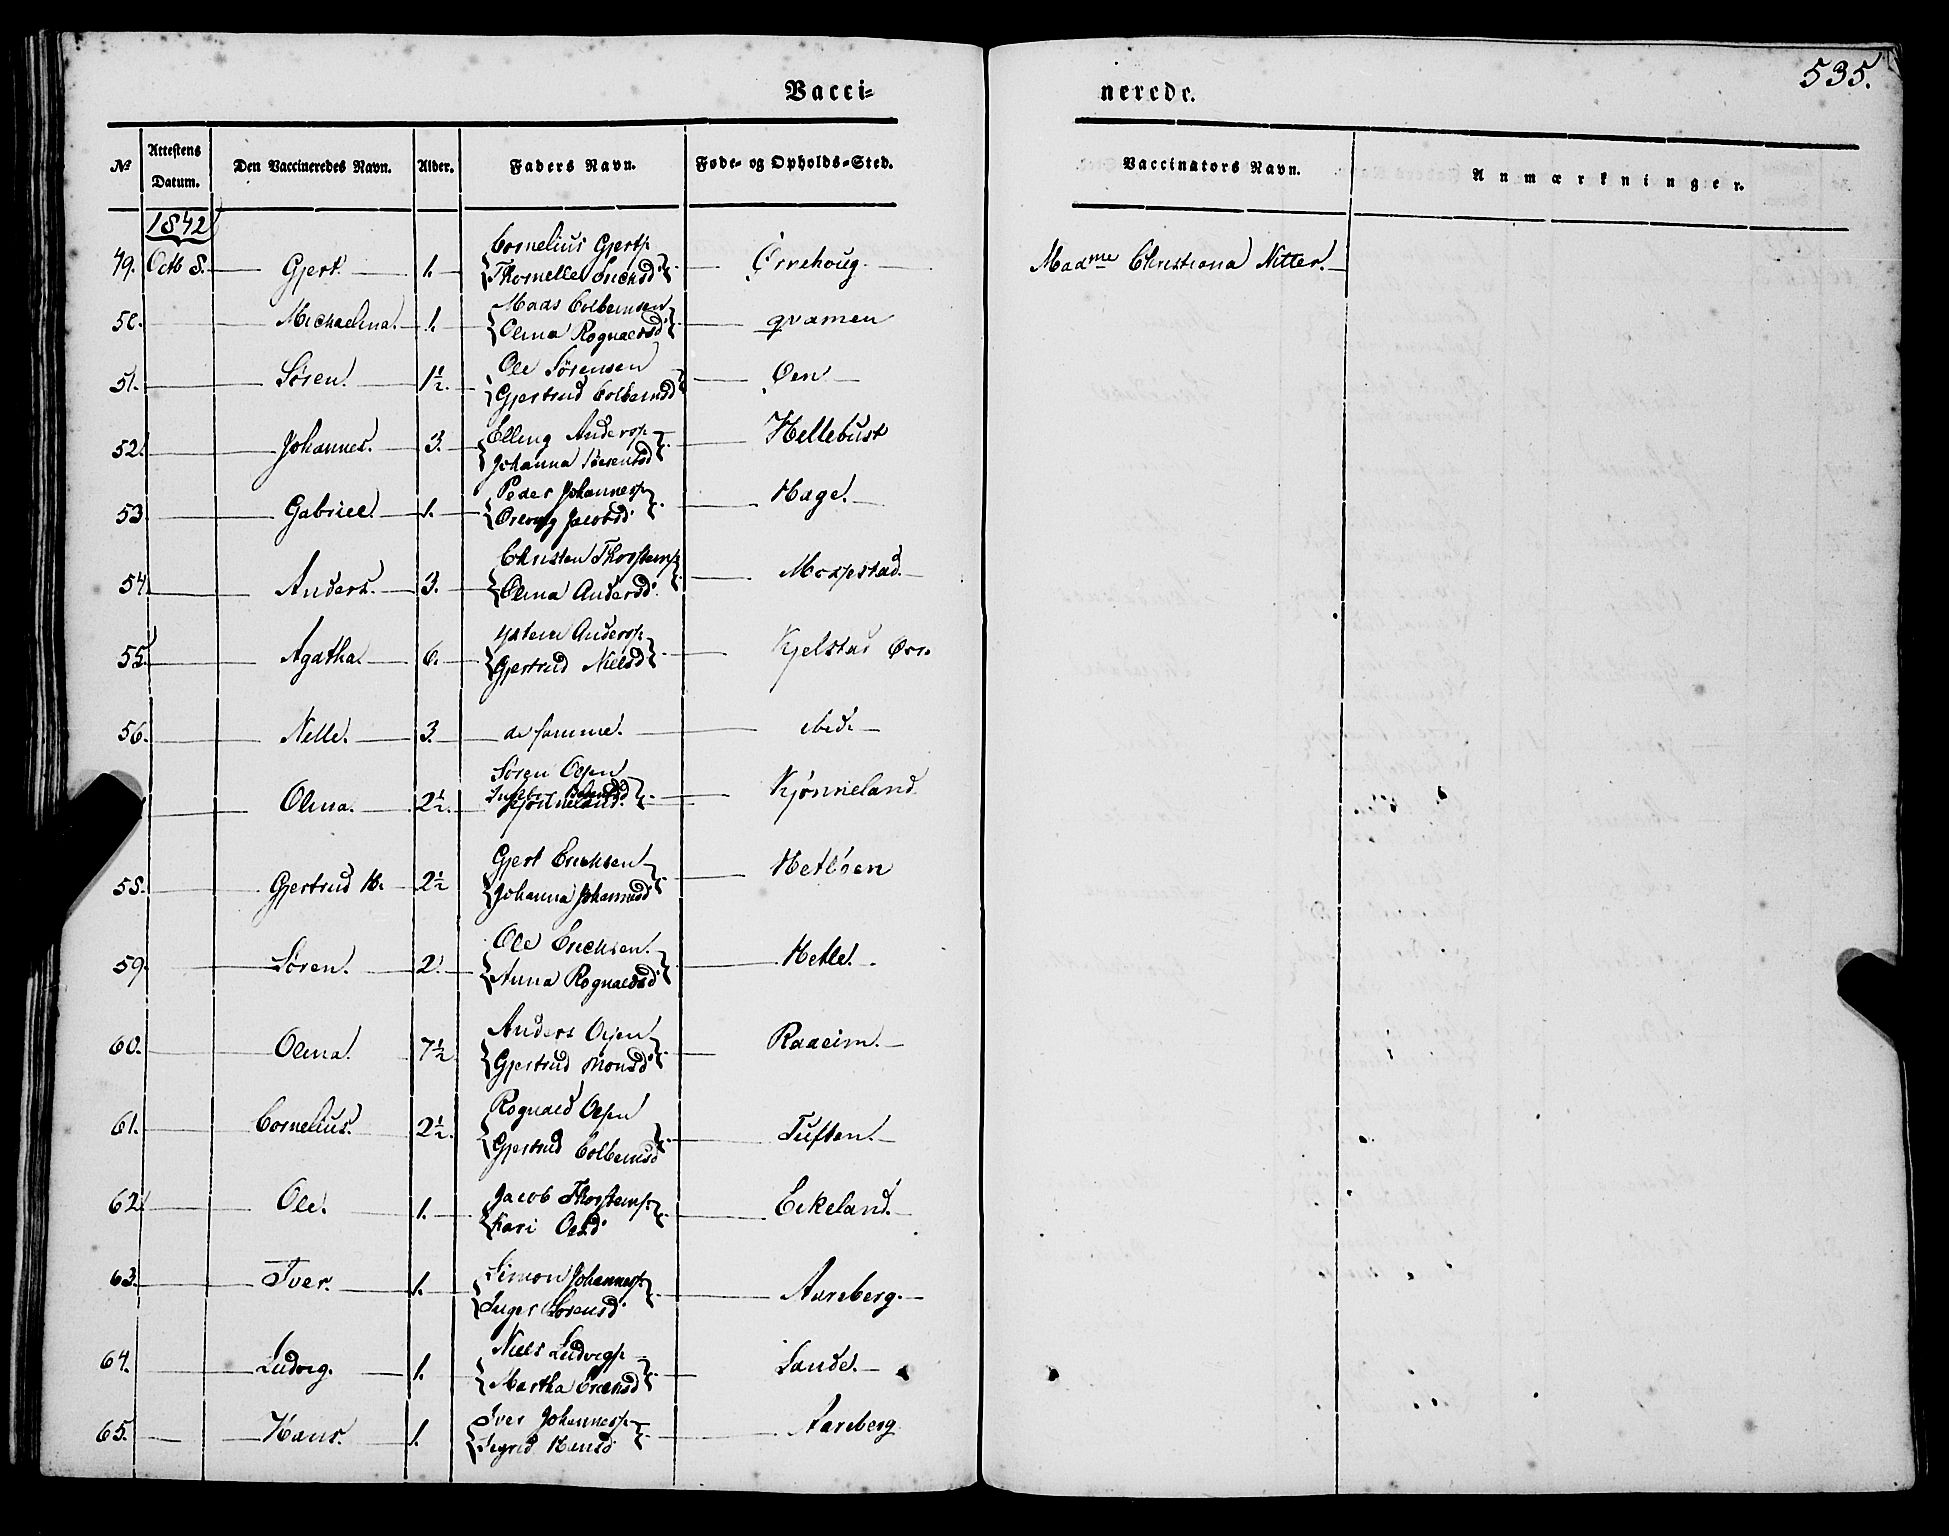 Vacci=
nerede.
535.
№ Attestens Datum. Den Vaccineredes Navn. Alder. Faders Navn. Føde- og Opholds-Sted. Vaccinators Navn. Anmærkninger.
1842
Cornelius Gjerts.
49. Octb 8. Gjert. 1. Ørrehoug. Madme Christiana Nitter.
Mads Colbensen
50. Michaelina. 1. Olina Rognaldsd. qvamen
Ole Sørensen
51. Søren. 1½. Gjertrud Colbensd Øen
Elling Anders.
52. Johannes. 3. Johanna Sørensd Hellebust
Peder Johannes.
53 Gabriel. 1. Jacobsd. Hage.
Christen Thorstens.
54 Anders. 3. Olina Andersd.
Anders.
55. Agatha. 6. Gjertrud Nielsd. Kjelstad
56. Nelle. 3 de samme. ibid.
Søren Olsen
Olina. 2½. Kjønneland
Gjert Erichsen
58. Gjertrud H. 2½ Johanna Johannesd. Hetleen
Ole Erichsen.
59. Søren. 2. Anna Rognaldsd. Hetle.
Anders Olsen
60. Olina. 7½ Gjertrud Monsd. Raaeim.
Rognald Olsen
61. Cornelius. 2½. Gjertrud Colbensd Tuften.
Jacob Thorstens.
62. Ole. 1. Kari Olsd. Eikeland.
Simon Johannes.
63. Iver. 1. Inger Sørensd. Aareberg.
Niels Ludvigs.
64. Ludvig. 1. Martha Sande.
Iver Johannes.
65. Hans. 1. Sigrid Hansd Aareberg